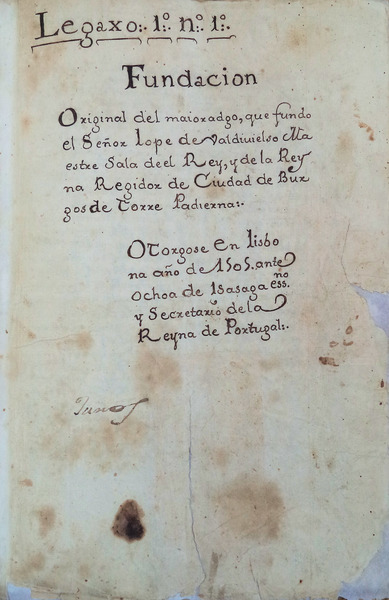 Legaxo:. 1º. nº. 1º:.
Fundacion
Original del maioradgo, que fundo
el Señor lope de Valdivielso Ma
estre Sala deel Rey, y de la Rey
na Regidor de Ciudad de Bur
gos de Torre Padierna:.
Otorgose en lisbo
na año de 1505. ante
ochoa de Isasaga essno.
y Secretario de la
Reyna de Portugal:.